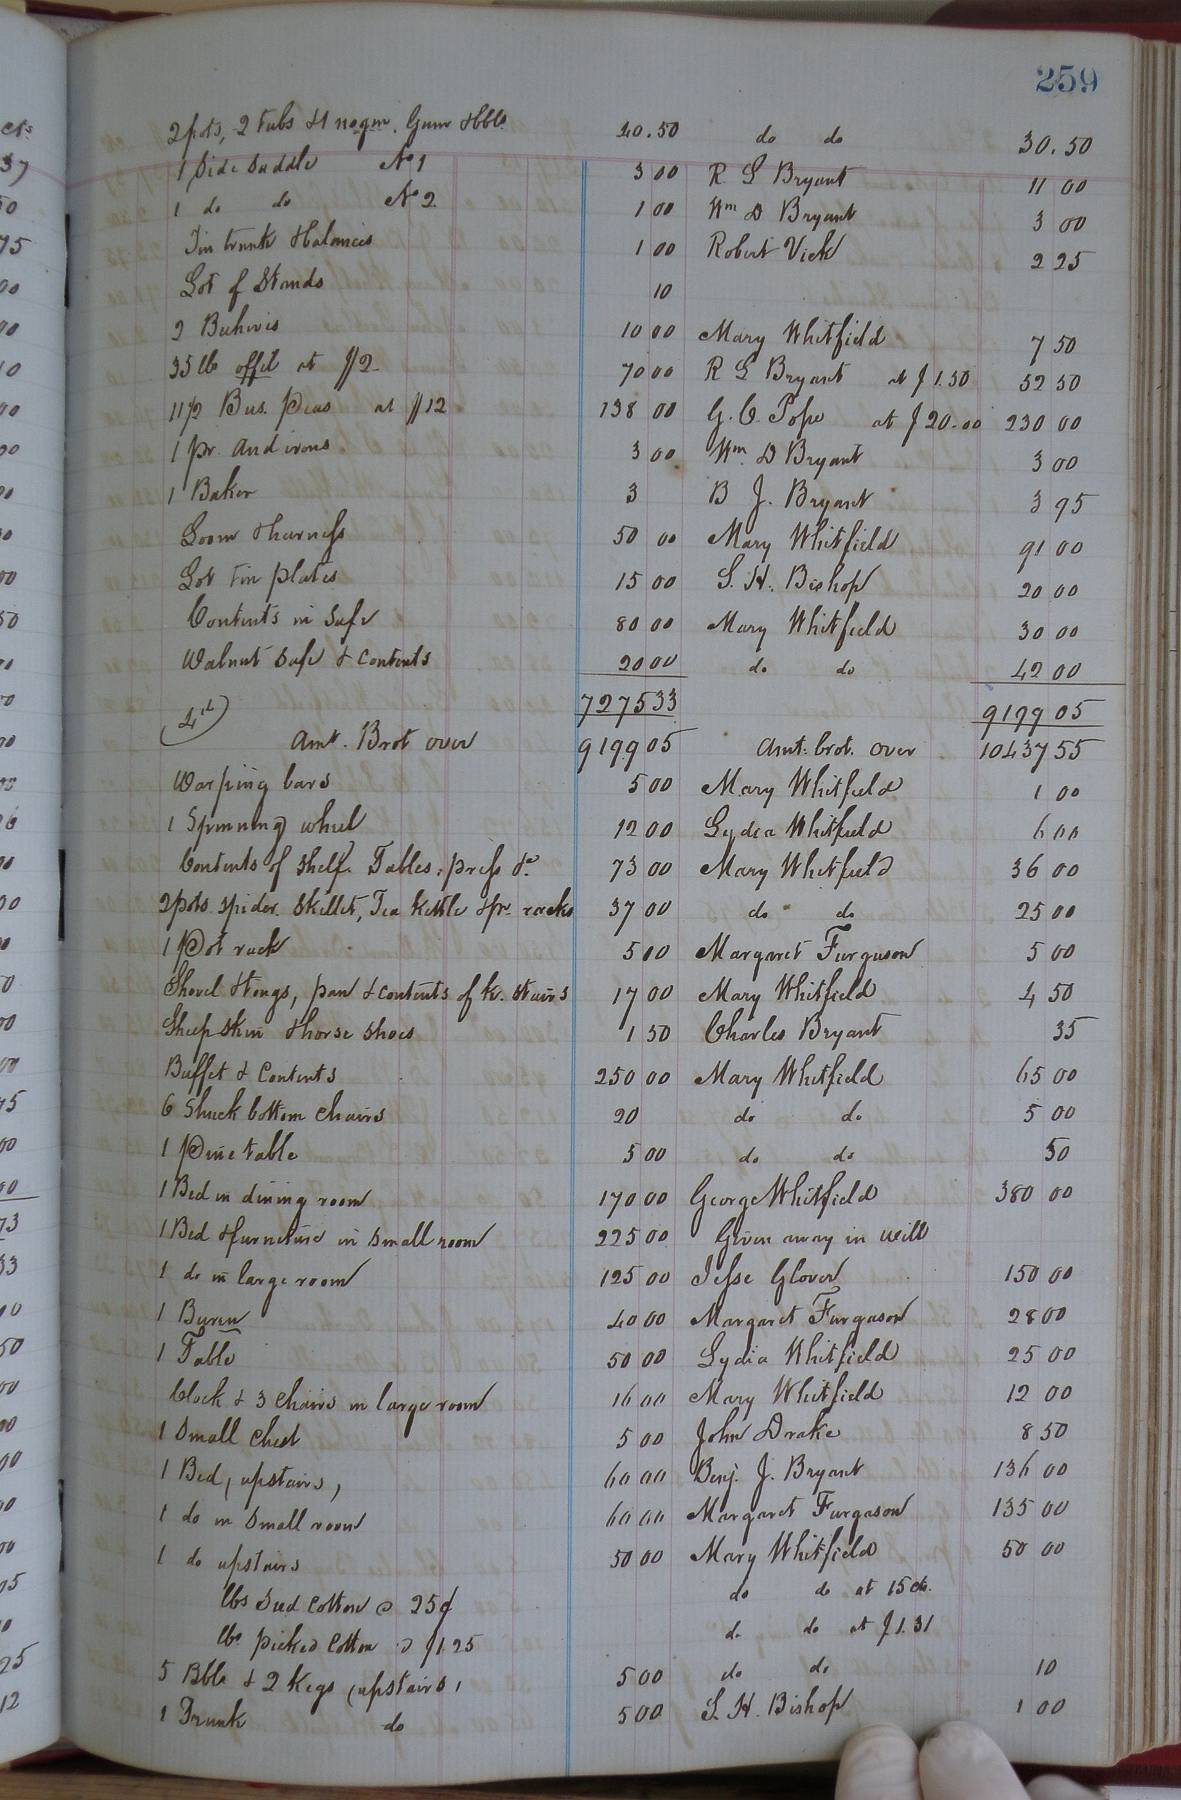 259
2 pots, 2 tubs & 1 Gum &bbls 40.50 do do 30.50
1 Side Saddle No 1 3 00 R S Bryant 11 00
1 do do No 2 1 00 Wm D Bryant 3 00
Tin trunk & balances 1 00 Robert Vick 2 25
Lot of Stands 10
2 Buhivis 10 00 Mary Whitfield 7 50
35 lb offil at $2 70 00 R S Bryant at $1.50 52 50
11 1/2 Bus. Peas at $12 138 00 G. C. Pope at $20.00 230 00
1 pr. And irons 3 00 Wm D Bryant 3 00
1 Baker 3 B J. Bryant 3 95
Loom & harness 50 00 Mary Whitfield 91 00
Lot tin plates 15 00 S. H. Bishop 20 00
Contents in Safe 80 00 Mary Whitfield 30 00
Walnut Safe & Contents 20 00 do do 42 00
7275 33 9199 05
4th
Amt. Brot over 9199 05 Amt. brot. over 10437 55
Warping bars 5 00 Mary Whitfield 1 00
1 Spinning wheel 12 00 Lydia Whitfield 6 00
Contents of Shelf. Tables, press &c 73 00 Mary Whitfield 36 00
2 pots spider Skillet, Tea Kettle & pr. racks 37 00 do do 25 00
1 Pot rack 5 00 Margaret Furguson 5 00
Shovel & tongs, pan & contents of K. Stairs 17 00 Mary Whitfield 4 50
Sheep Skin & horse shoes 1 50 Charles Bryant 35
Buffet & Contents 250 00 Mary Whitfield 65 00
6 Shuck bottom chairs 20 do do 5 00
1 Pine table 5 00 do do 50
1 Bed in dining room 170 00 George Whitfield 380 00
1 Bed & furniture in Small room 225 00 Given away in will
1 do in large room 125 00 Jesse Glover 150 00
1 Buren 40 00 Margaret Furgason 28 00
1 Table 50 00 Lydia Whitfield 25 00
Clock & 3 Chairs in large room 16 00 Mary Whitfield 12 00
1 Small Chest 5 00 John Drake 8 50
1 Bed, upstairs, 60 00 Benj. J. Bryant 136 00
1 do in Small room 60 00 Margaret Furgason 135 00
1 do upstairs 50 00 Mary Whitfield 50 00
lbs Seed Cotton @ 25¢ do do at 15 cts.
lbs picked Cotton @ $1.25 do do at $1.31
5 Bbls & 2 Kegs (upstairs, 5 00 do do 10
1 Trunk do 5 00 S. H. Bishop 1 00